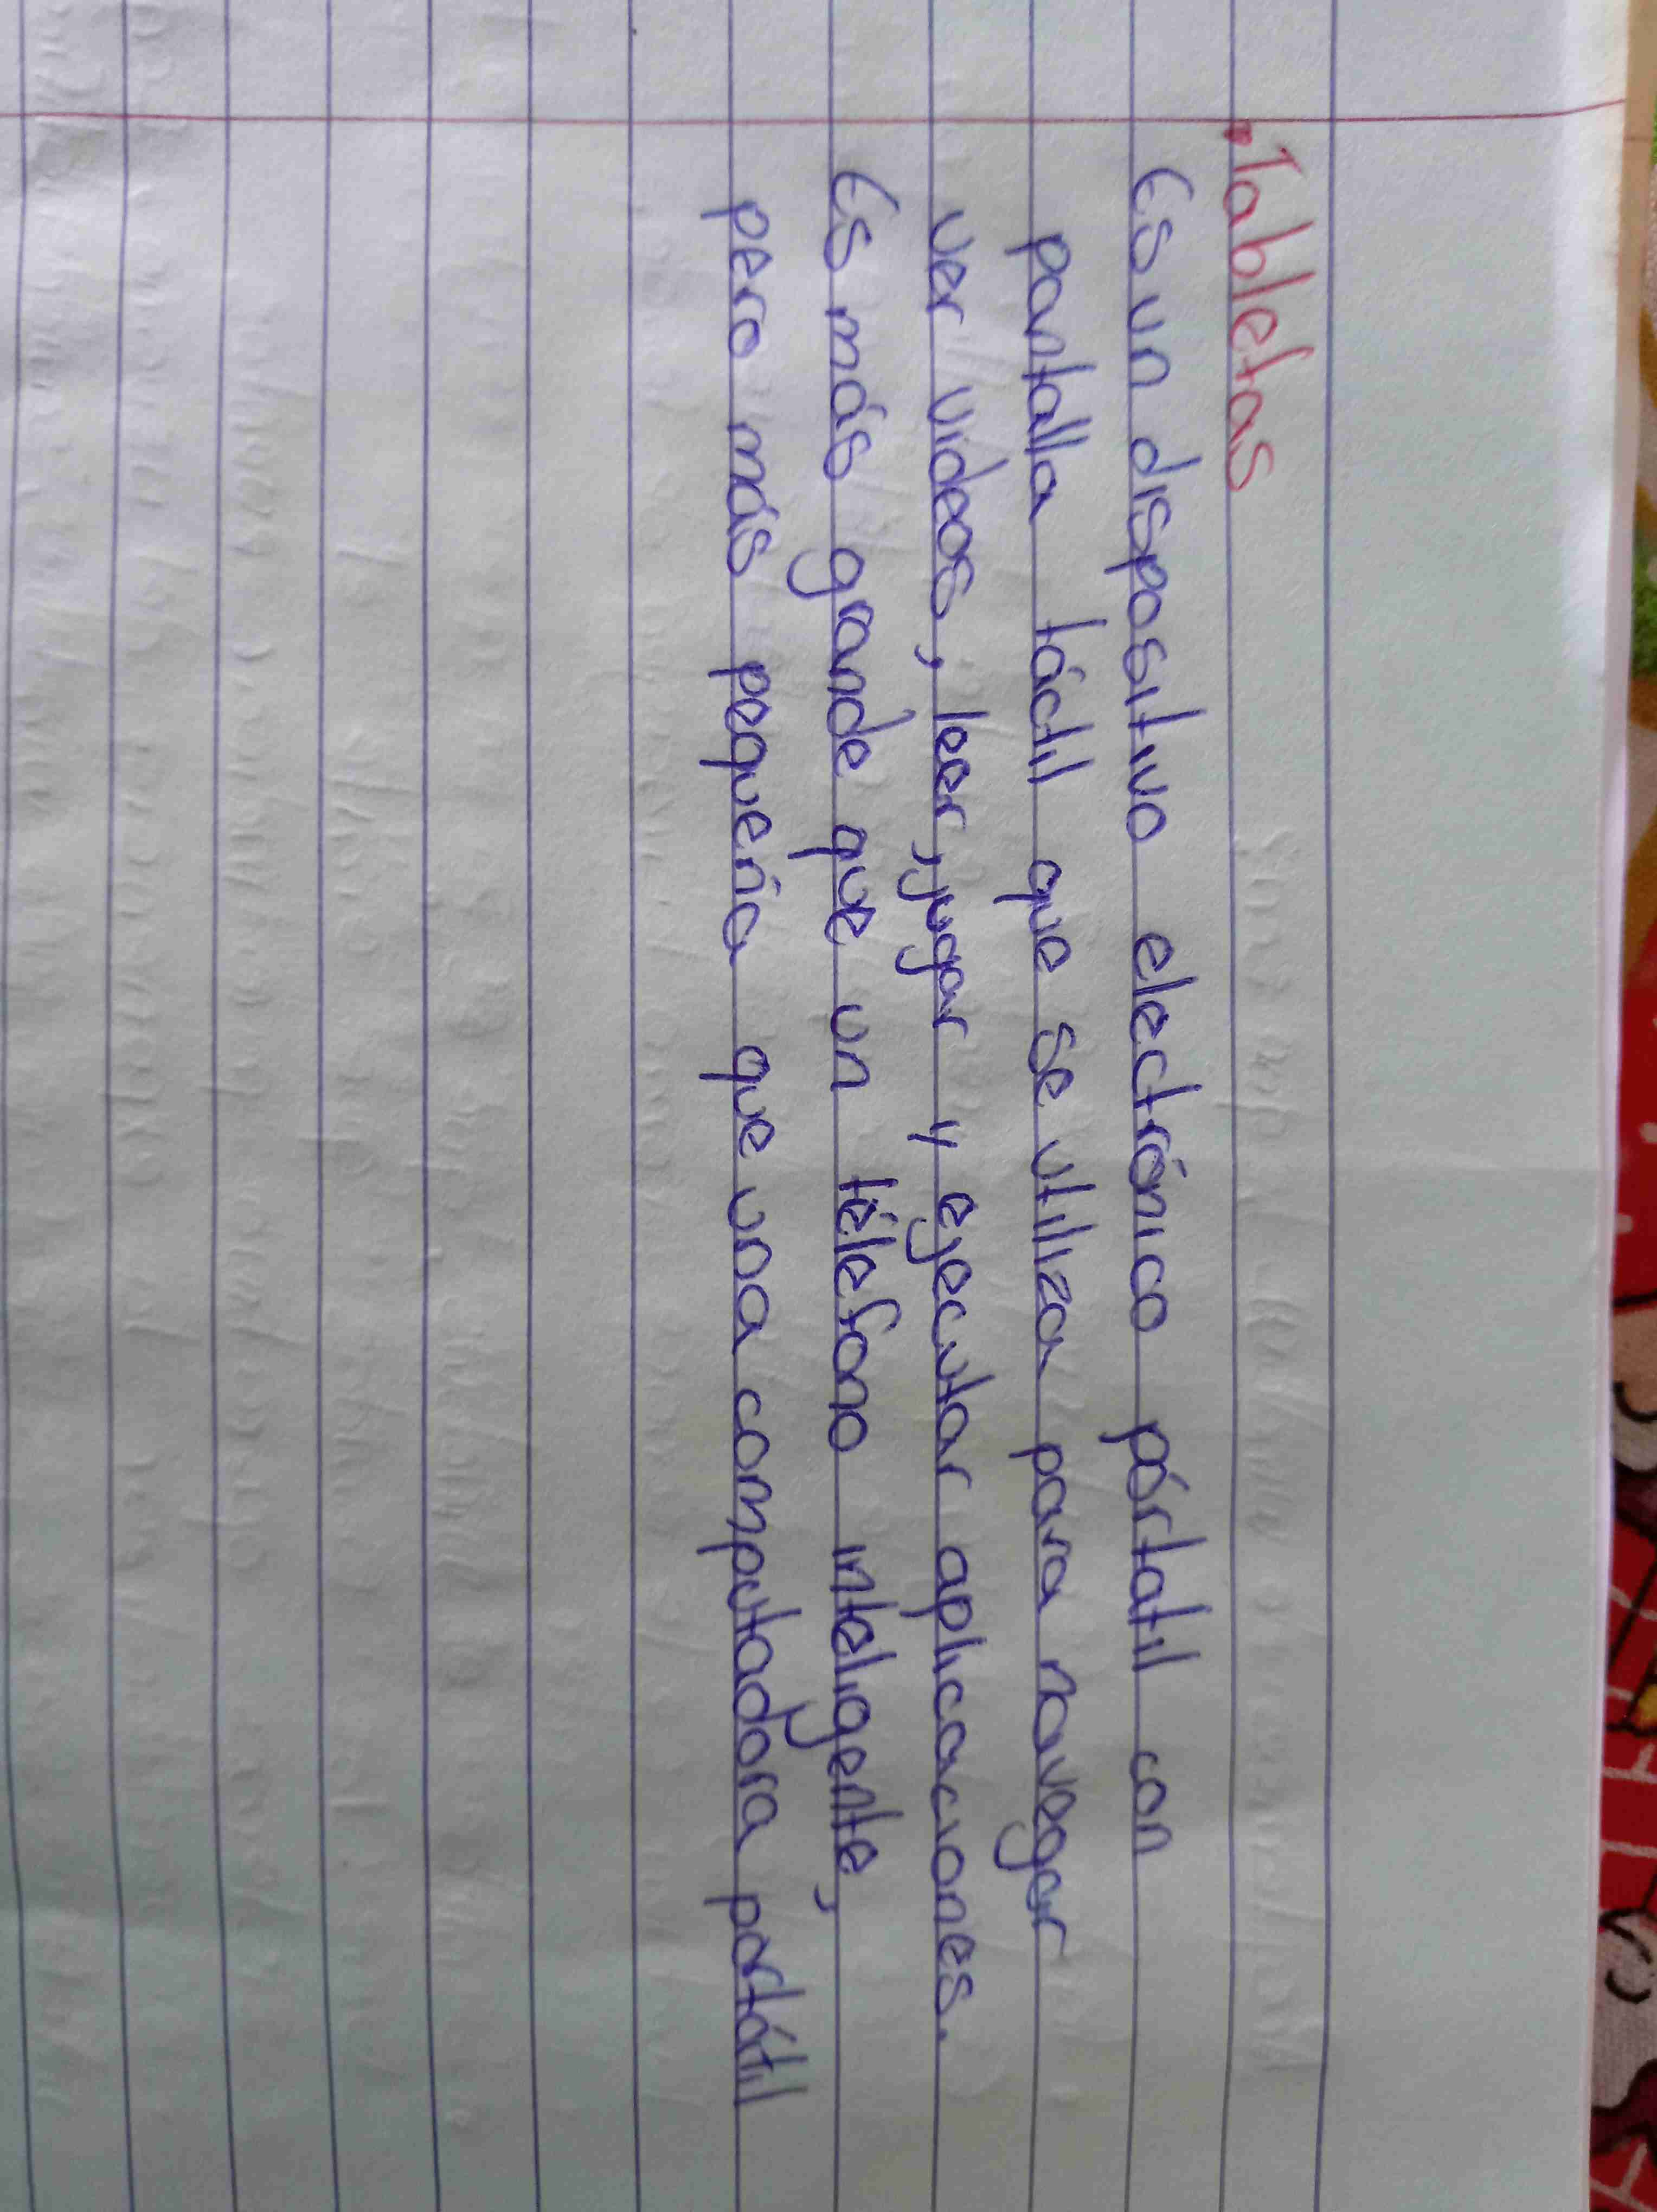 Tabletas
Es un dispositivo electrónico pórtatil con
pantalla táctil que se utiliza para navegar
ver videos, leer, jugar y ejecutar aplicaciones.
Es más grande que un télefono inteligente,
pero más pequeña que una computadora portátil